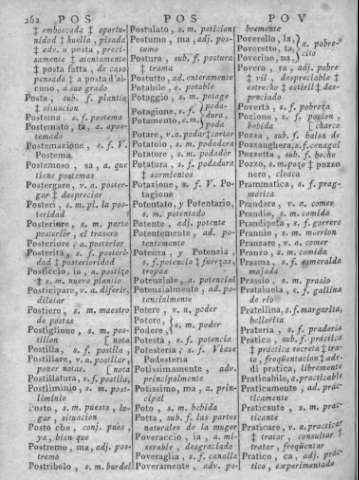 262 POS POS POV
‡ emboscada ‡ oportu-
nidad ‡ huella, pisada
‡ adv. a posta, preci-
samente ‡ atentamente
‡ posta fatta, de caso
pensado ‡ a posta d'al-
cuno, a suo grado
Posta, sub. f. plantía
‡ situacion
Postema, s. f. postema
Postemato, ta, a. apos-
temado
Postemazione, s. f. V.
Postema
Postemoso, sa, a. que
tiene postemas
Postergare, v. a. poster-
gar ‡ despreciar
Posteri, s. m. pl. la pos-
teridad
Posteriore, s. m. parte
posterior, el trasero
Posteriore, a. posterior
Posterità, s. f. posteri-
dad ‡ posterioridad
Posticcio, ia, a. postizo
‡ s. m. nuevo plantío
Posticipare, v. a. diferir,
dilatar
Postiero, s. m. maestro
de postas
Postiglione, s. m. pos-
tillon [nota
Postilla, s. f. postila,
Postillare, v. a. postilar,
poner notas. [nota
Postillatura, s. f. postila,
Postliminio, s. m. post-
liminio
Posto, s. m. puesto, lu-
gar, situacion
Posto che, conj. pues,
ya, bien que
Postremo, ma, adj. pos-
tremo
Postribolo, s. m. burdel
Postulato, s. m. peticion
Postumo, ma, adj. pos-
tumo
Postura, sub. f. postura
‡ trama
Postutto, ad. enteramente
Potabile, a. potable
Potaggio, s. m. potage
Potagione, s. f. } poda-
Potamento, s. m. } dura, poda
Potare, v. a. podar ‡ cortar
Potatoio, s. m. podadera
Potatore, s. m. podador
Potatura, s. f. podadura
‡ sarmientos
Potazione, s. f. V. Po-
tagione
Potentato, y Potentario,
s. m. potentado
Potente, adj. potente
Potentemente, ad. po-
tentemente
Potenza, y Potenzia,
s. f. potencia ‡ fuerzas,
tropas
Potenziale, a. potencial
Potenzialmente, ad. po-
tencialmente
Potere, v. n. poder
Potere, } s. m. poder
Podere, }
Potestà, s. f. potencia
Potesteria, s. f. Vease
Podesteria
Potissimamente, adv.
principalmente
Potissimo, ma, a. prin-
cipal
Poto, s. m. bebida
Potta, sub. f. las partes
naturales de la muger
Poveraccio, ia, a. mi-
serable, desgraciado
Poveraglia, s. f. canalla
Poveramente, adv. po-
bremente
Poverello, la, } a. pobre-
Poveretto, ta, } cito
Poverino, na, }
Povero, ra, adj. pobre
‡ vil, despreciable ‡
estrecho ‡ estéril ‡ des-
preciado
Povertà, s. f. pobreza
Pozione, s. f. pocion,
bebida [charca
Pozza, sub. f. balsa de
Pozzanghera, s. f. cenagal
Pozzetta, sub. f. hoche
Pozzo, s. m. pozo ‡ pozo
nero, cloaca
Prammatica, s. f. prag-
mática
Prandere, v. a. comer
Prandio, s. m. comida
Prandipeta, s. f. gorrero
Prannio, s. m. morrion
Pranzare, v. a. comer
Pranzo, s. m. comida
Prasma, s. f. esmeralda
majada
Prassio, s. m. prasio
Prataiuola, s. f. gallina
de rio
Pratellina, s. f. margarita,
bellorita
Prateria, s. f. pradería
Pratica, sub. f. práctica
‡ práctica secreta ‡ tra-
to, freqüentacion ‡ adv.
di pratica, libremente
Praticabile, a. practicable
Praticamente, ad. prác-
ticamente
Praticante, s. m. prac-
ticante
Praticare, v. a. practicar
‡ tratar, consultar ‡
tratar, freqüentar
Pratico, ca, adj. prác-
tico, experimentado